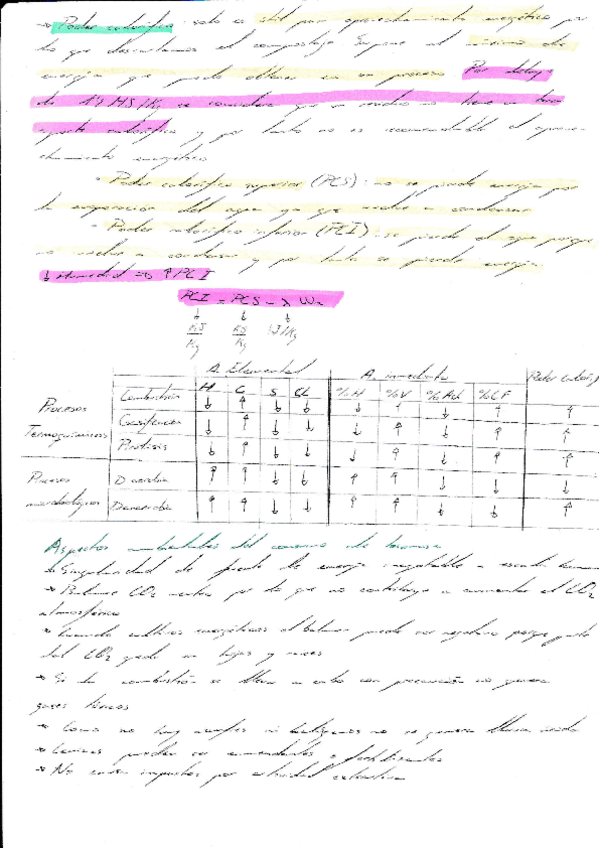 → Poder calorífico: solo es útil para aprovechamiento energético por
lo que descartamos el compostaje. Supone el mínimo de
energía que puede obtener en un proceso. Por debajo
de MJ/Kg se considera que un residuo no tiene un buen
aporte calorífico y por tanto no es recomendable el aprove-
chamiento energético
• Poder calorífico superior (PCS): no se pierde energía por
la evaporación del agua ya que vuelve a condensar
• Poder calorífico inferior (PCI): se pierde el agua porque
no vuelve a condensar y por tanto se pierde energía
↓ Humedad => ↑ PCI
PCI = PCS - λ W
↓ ↓ ↓
Kg Kg
A. Elemental A. inmediato Poder calorif
H C S CL %H %V %Ash %CF
Procesos Termoquímicos
Combustión ↓ ↑ ↓ ↓ ↓ ↑ ↓ ↑ ↑
Gasificación ↓ ↑ ↓ ↓ ↓ ↑ ↓ ↑ ↑
Pirólisis ↓ ↑ ↓ ↓ ↓ ↑ ↓ ↑ ↑
Procesos microbiológicos
D aerobia ↑ ↑ ↓ ↓ ↑ ↑ ↓ ↓ ↓
D anaerobia ↑ ↑ ↓ ↓ ↑ ↑ ↓ ↓ ↑
Aspectos ambientales del consumo de biomasa
→ de fuente de energía inagotable a escala humana
→ Balance CO2 neutro por lo que no contribuye a aumentar el CO2
atmosférico
→ cultivos energéticos el balance puede ser negativo porque parte
del CO2 queda en hojas y raíces
→ Si la combustión se lleva a cabo con precaución no genera
gases tóxicos
→ Como no hay azufre ni no se genera lluvia ácida
→ Cenizas pueden ser enmendantes o fertilizantes
→ No causa impactos por actividad extractiva